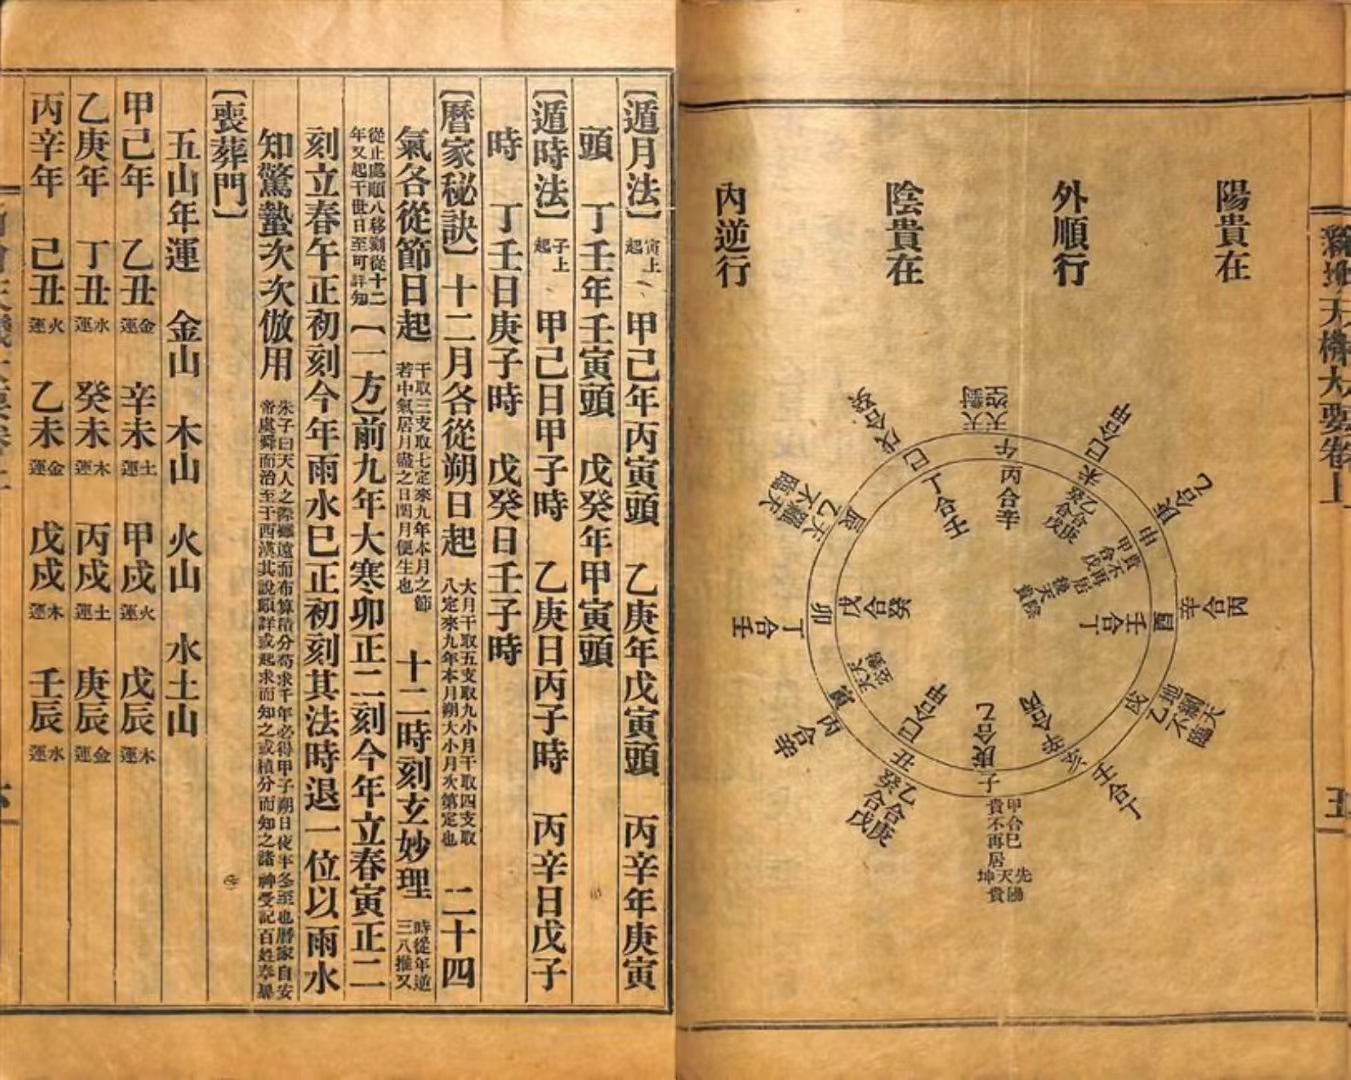 陽貴在
外順行
陰貴在
內逆行
午
天空
天對
丙合辛
未
甲合己
乙合庚
癸合戊
申
乙合庚
甲合己
貴不再居
後天
陰貴
酉
丙合辛
壬合丁
戌
地網
天不臨
乙
亥
丁合壬
子
乙合庚
甲合己
貴不再居
先天坤
陽貴
丑
甲合己
乙合庚
癸合戊
寅
丙合辛
天空
天對
卯
丁合壬
戊合癸
辰
天羅
乙不臨
巳
戊合癸
丁合壬
大要卷上
五
【遁月法】寅上起 甲己年丙寅頭 乙庚年戊寅頭 丙辛年庚寅
頭 丁壬年壬寅頭 戊癸年甲寅頭
【遁時法】子上起 甲己日甲子時 乙庚日丙子時 丙辛日戊子
時 丁壬日庚子時 戊癸日壬子時
【曆家秘訣】十二月各從朔日起 大月干取五支取九小月干取四支取八定來九年本月朔大小月次第定也 二十四
氣各從節日起 干取三支取七定來九年本月之節若中氣居月盡之日閏月便生也 十二時刻玄妙理 時從年逆三八推又
從止處順八移劉從十二年又起干世日至可詳知【一方】前九年大寒卯正二刻今年立春寅正二
刻立春午正初刻今年雨水巳正初刻其法時退一位以雨水
知驚蟄次次倣用 朱子曰天人之際鄕遠而布算積分苟求千年必得甲子朔日夜半冬至也曆家自安帝虞舜而治至于西漢其說頗詳或起求而知之或積分而知之諸神受記百姓奉暴
【喪葬門】
五山年運 金山 木山 火山 水土山
甲己年 乙丑金運 辛未土運 甲戌火運 戊辰木運
乙庚年 丁丑水運 癸未木運 丙戌土運 庚辰金運
丙辛年 己丑火運 乙未金運 戊戌木運 壬辰水運